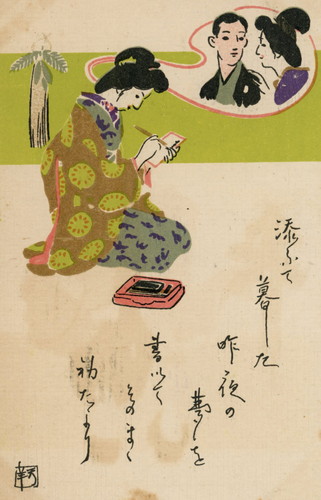 添ふて
暮した
昨夜の
夢を
書いて
そのまゝ
初たより